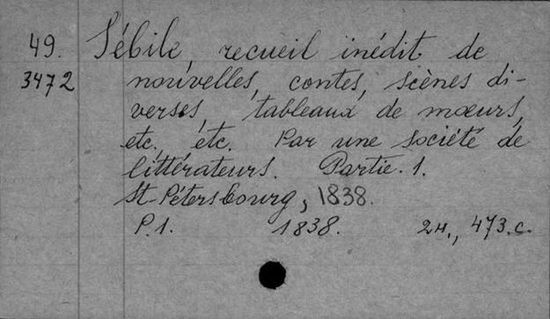 49. Sébile recueil inédit de
3472 nouvelles, contes, scènes di-
verses, tableaux de mœurs,
etc., étc. Par une société de
littérateurs. Partie. 1.
St-Pétersbourg, 1838.
P.1. 1838. 2н., 473.c.